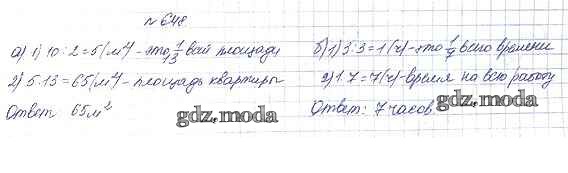 №648
а) 1) 10 : 2 = 5 (м²) - это 1/13 всей площади
2) 5 · 13 = 65 (м²) - площадь квартиры
Ответ: 65 м²
б) 1) 3 : 3 = 1 (ч) - это 1/7 всего времени
2) 1 · 7 = 7 (ч) - время на всю работу
Ответ: 7 часов
gdz.moda
gdz.moda